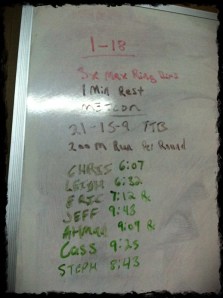 1-18
3x Max Ring Dips
1 Min Rest
METCON
21-15-9 TTB
200 M Run Per Round
CHRIS 6:07
LEIGH 6:32
ERIC 7:12 Rx
JEFF 9:43
AHMAD 9:09 Rx
Cass 9:25
STEPH 8:43